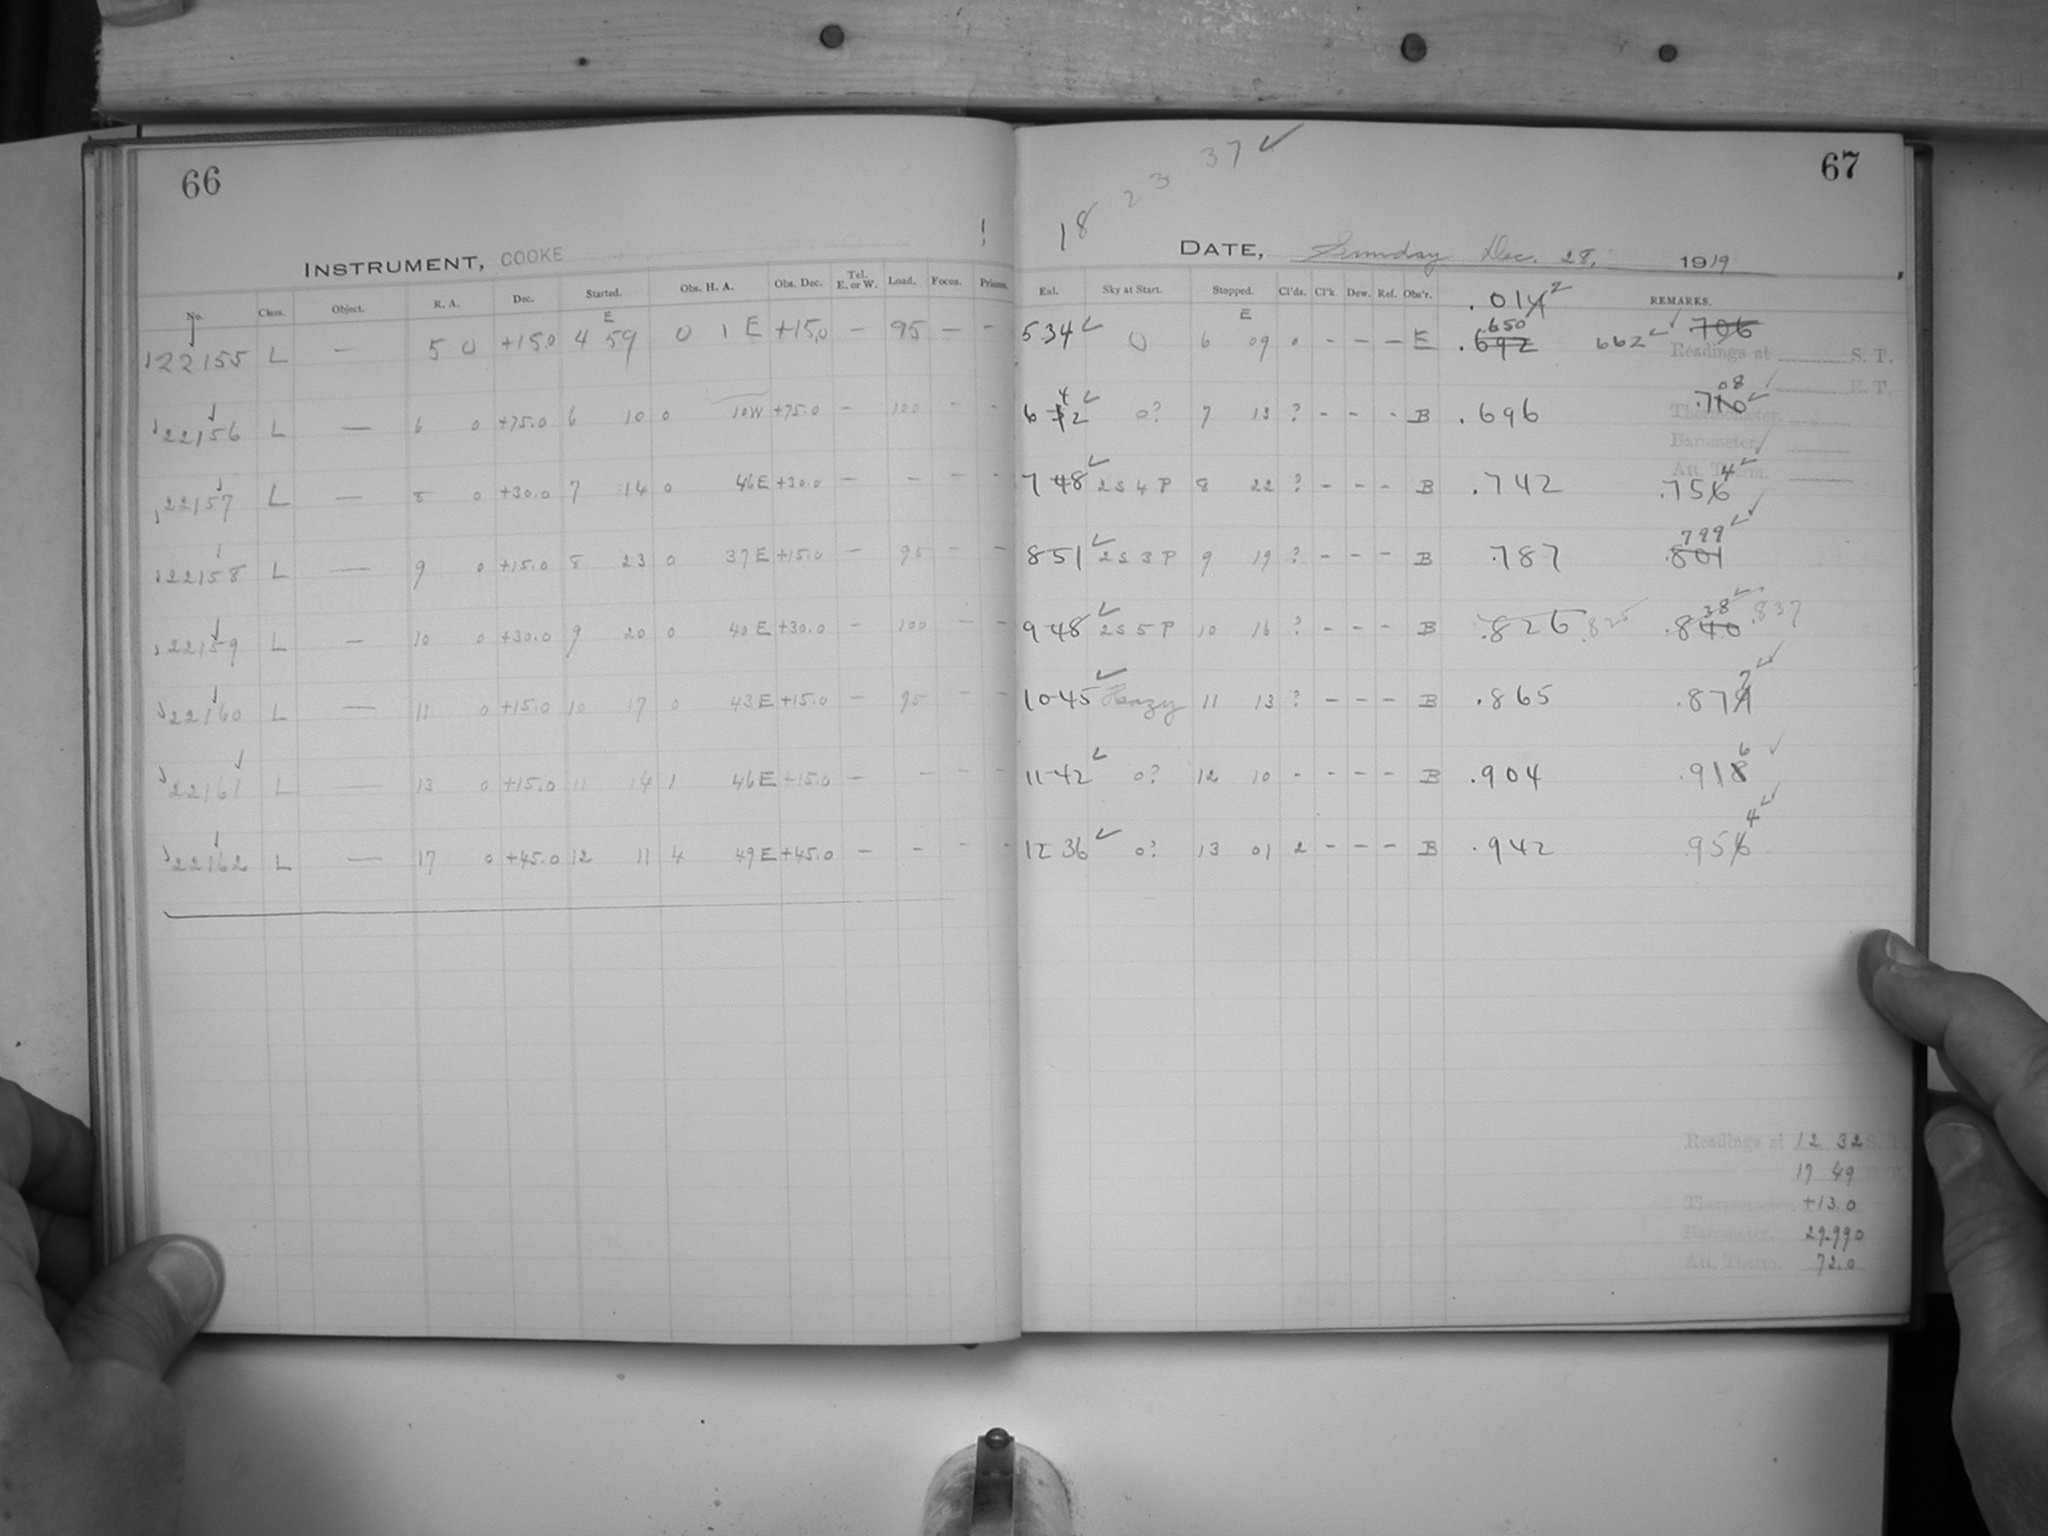 66
INSTRUMENT, COOKE
No. Class. Object. R. A. Dec. Started. Obs. H. A. Obs. Dec. Tel. E. or W. Load. Focus. Prisms.
E
22155 L — 5 0 +15.0 4 59 0 1 E +15.0 — 95 — —
22156 L — 6 0 +75.0 6 10 0 10W +75.0 — 100 - -
22157 L — 8 0 +30.0 7 14 0 46E +30.0 — — — —
22158 L — 9 0 +15.0 8 23 0 37E +15.0 — 95 — —
22159 L — 10 0 +30.0 9 20 0 40E +30.0 — 100 — —
22160 L — 11 0 +15.0 10 17 0 43E +15.0 — 95 — —
22161 L — 13 0 +15.0 11 14 1 46E +15.0 — — — —
22162 L — 17 0 +45.0 12 11 4 49E +45.0 — — — —
18 23 37 ✓
67
DATE, Sunday Dec. 28, 1919
Exl. Sky at Start. Stopped. Cl'ds. Cl'k. Dew. Ref. Obs'r. REMARKS.
.014 2
E
5 34 ✓ 0 6 09 0 - — — E .692 .650 662 ✓ 706
Readings at S. T.
E. T.
6 42 ✓ 0? 7 13 ? - - - B .696 .710 08 ✓
Thermometer.
Barometer.
Att. Therm.
7 48 ✓ 2S4P 8 22 ? - - - B .742 .756 4 ✓
8 51 ✓ 2S3P 9 19 ? - - - B .787 .801 799 ✓
9 48 ✓ 2S5P 10 16 ? - - - B .826 .825 .840 38 ✓ .837
10 45 ✓ Hazy 11 13 ? - - - B .865 .879 7 ✓
11 42 ✓ 0? 12 10 - - - - B .904 .918 6 ✓
12 36 ✓ 0? 13 01 2 - - - B .942 .956 4 ✓
Readings at 12 32 S. T.
17 49 E. T.
Thermometer. +13.0
Barometer. 29.990
Att. Therm. 72.0